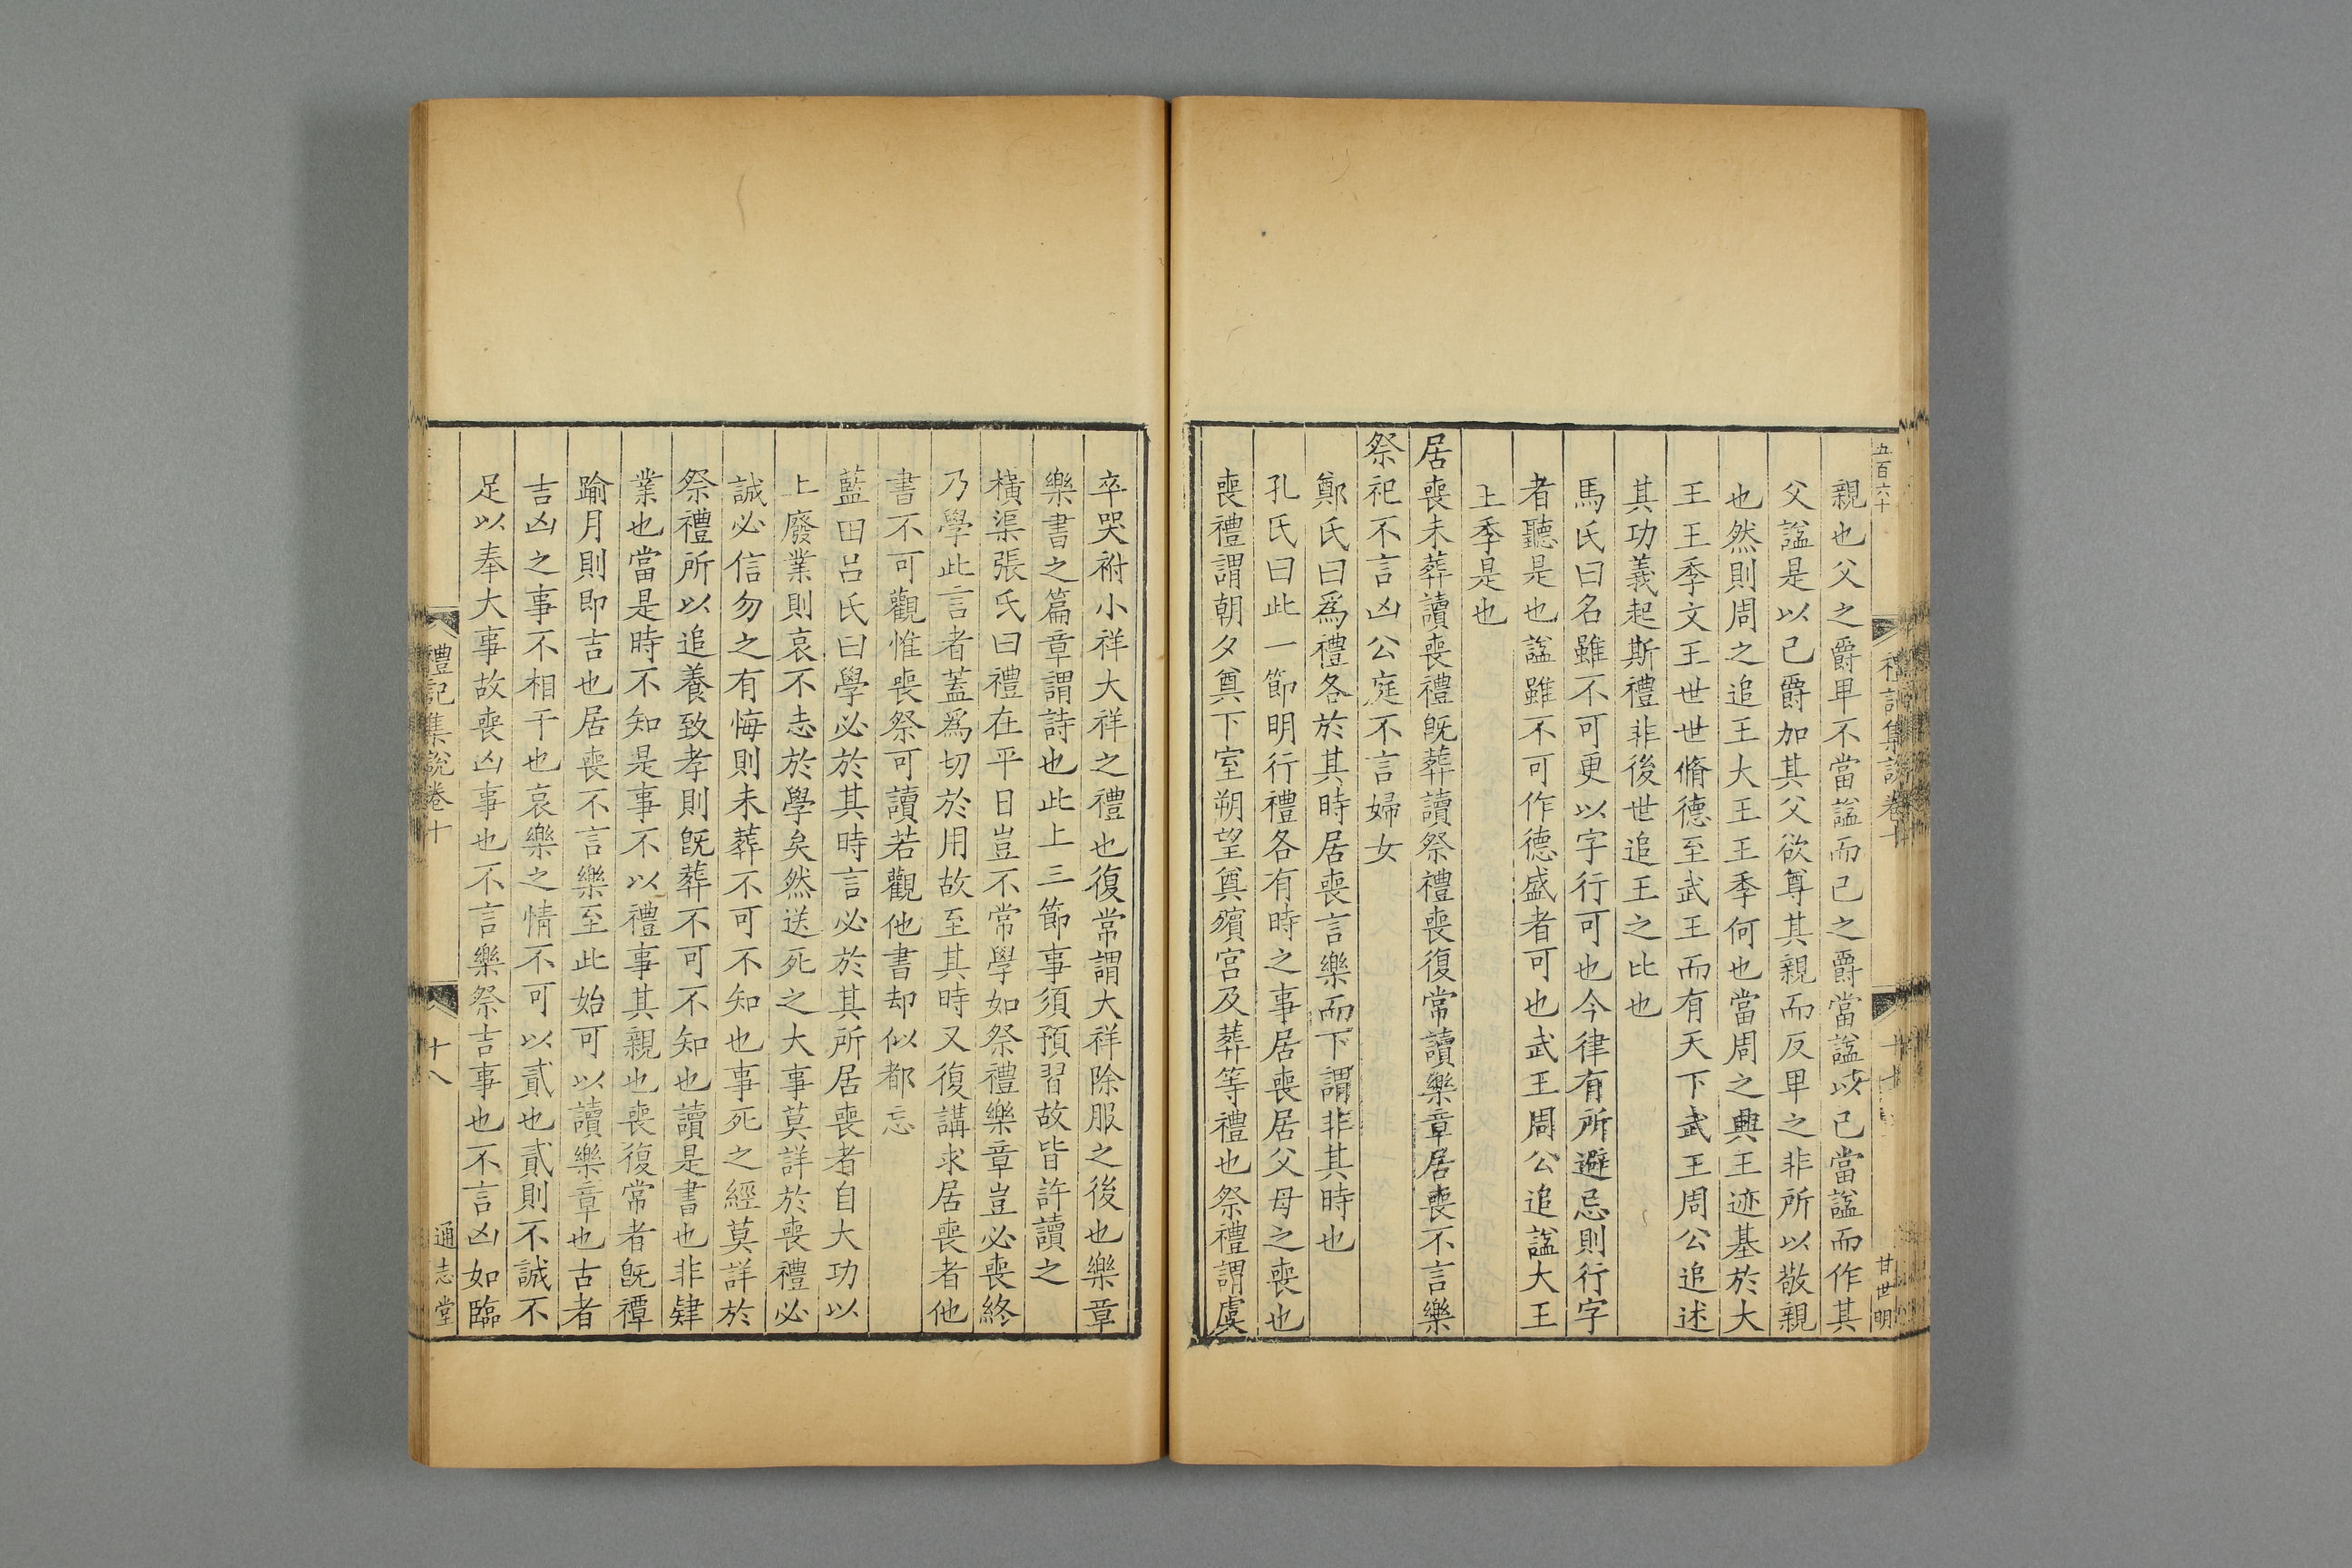 五百六十
禮記集說卷十
甘世明
親也父之爵卑不當諡而己之爵當諡以己當諡而作其
父諡是以己爵加其父欲尊其親而反卑之非所以敬親
也然則周之追王大王王季何也當周之興王迹基於大
王王季文王世世脩德至武王而有天下武王周公追述
其功義起斯禮非後世追王之比也
馬氏曰名雖不可更以字行可也今律有所避忌則行字
者聽是也諡雖不可作德盛者可也武王周公追諡大王
王季是也
居喪未葬讀喪禮旣葬讀祭禮喪復常讀樂章居喪不言樂
祭祀不言凶公庭不言婦女
鄭氏曰爲禮各於其時居喪言樂而下謂非其時也
孔氏曰此一節明行禮各有時之事居喪居父母之喪也
喪禮謂朝夕奠下室朔望奠殯宮及葬等禮也祭禮謂虞
卒哭祔小祥大祥之禮也復常謂大祥除服之後也樂章
樂書之篇章謂詩也此上三節事須預習故皆許讀之
橫渠張氏曰禮在平日豈不常學如祭禮樂章豈必喪終
乃學此言者蓋爲切於用故至其時又復講求居喪者他
書不可觀惟喪祭可讀若觀他書却似都忘
藍田呂氏曰學必於其時言必於其所居喪者自大功以
上廢業則哀不志於學矣然送死之大事莫詳於喪禮必
誠必信勿之有悔則未葬不可不知也事死之經莫詳於
祭禮所以追養致孝則旣葬不可不知也讀是書也非肄
業也當是時不知是事不以禮事其親也喪復常者旣禫
踰月則即吉也居喪不言樂至此始可以讀樂章也古者
吉凶之事不相干也哀樂之情不可以貳也貳則不誠不
足以奉大事故喪凶事也不言樂祭吉事也不言凶如臨
禮記集說卷十
十八
通志堂